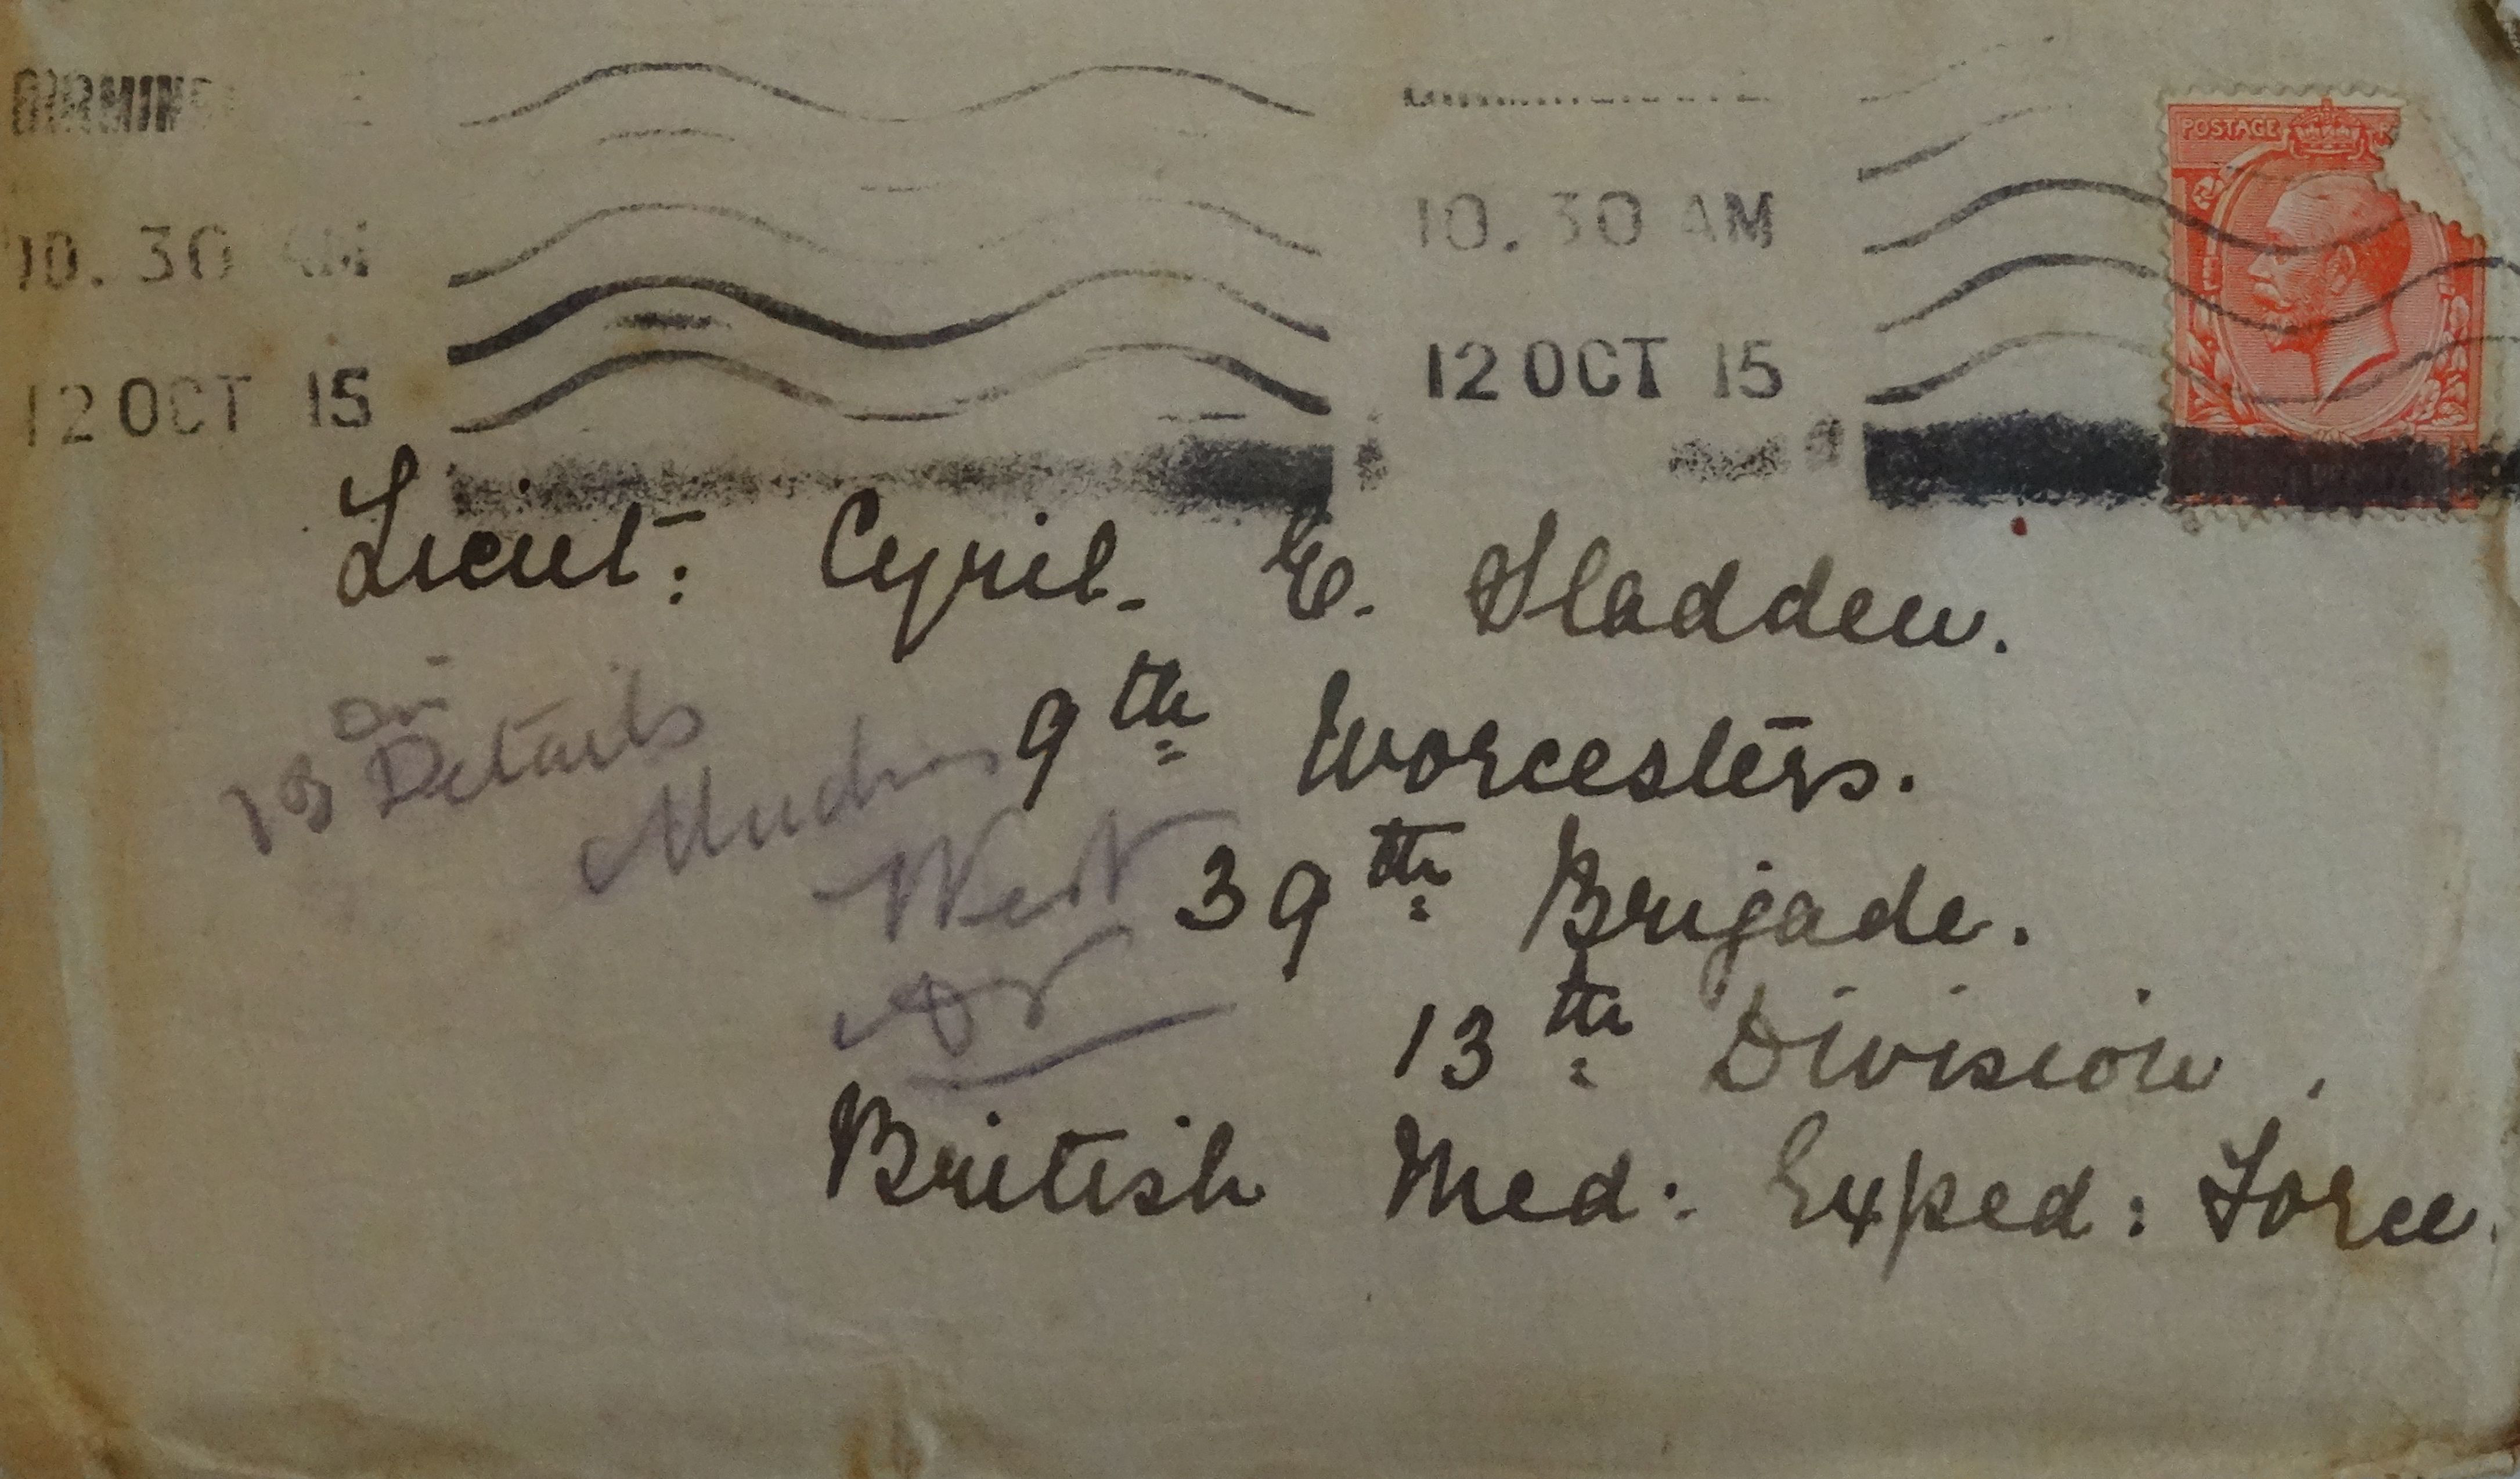 BIRMING
10. 30 AM
12 OCT 15
10. 30 AM
12 OCT 15
POSTAGE
Lieut: Cyril. E. Sladden.
9th Worcesters.
39th Brigade.
13th Division.
British Med: Exped: Force.
Details
Mudros
West